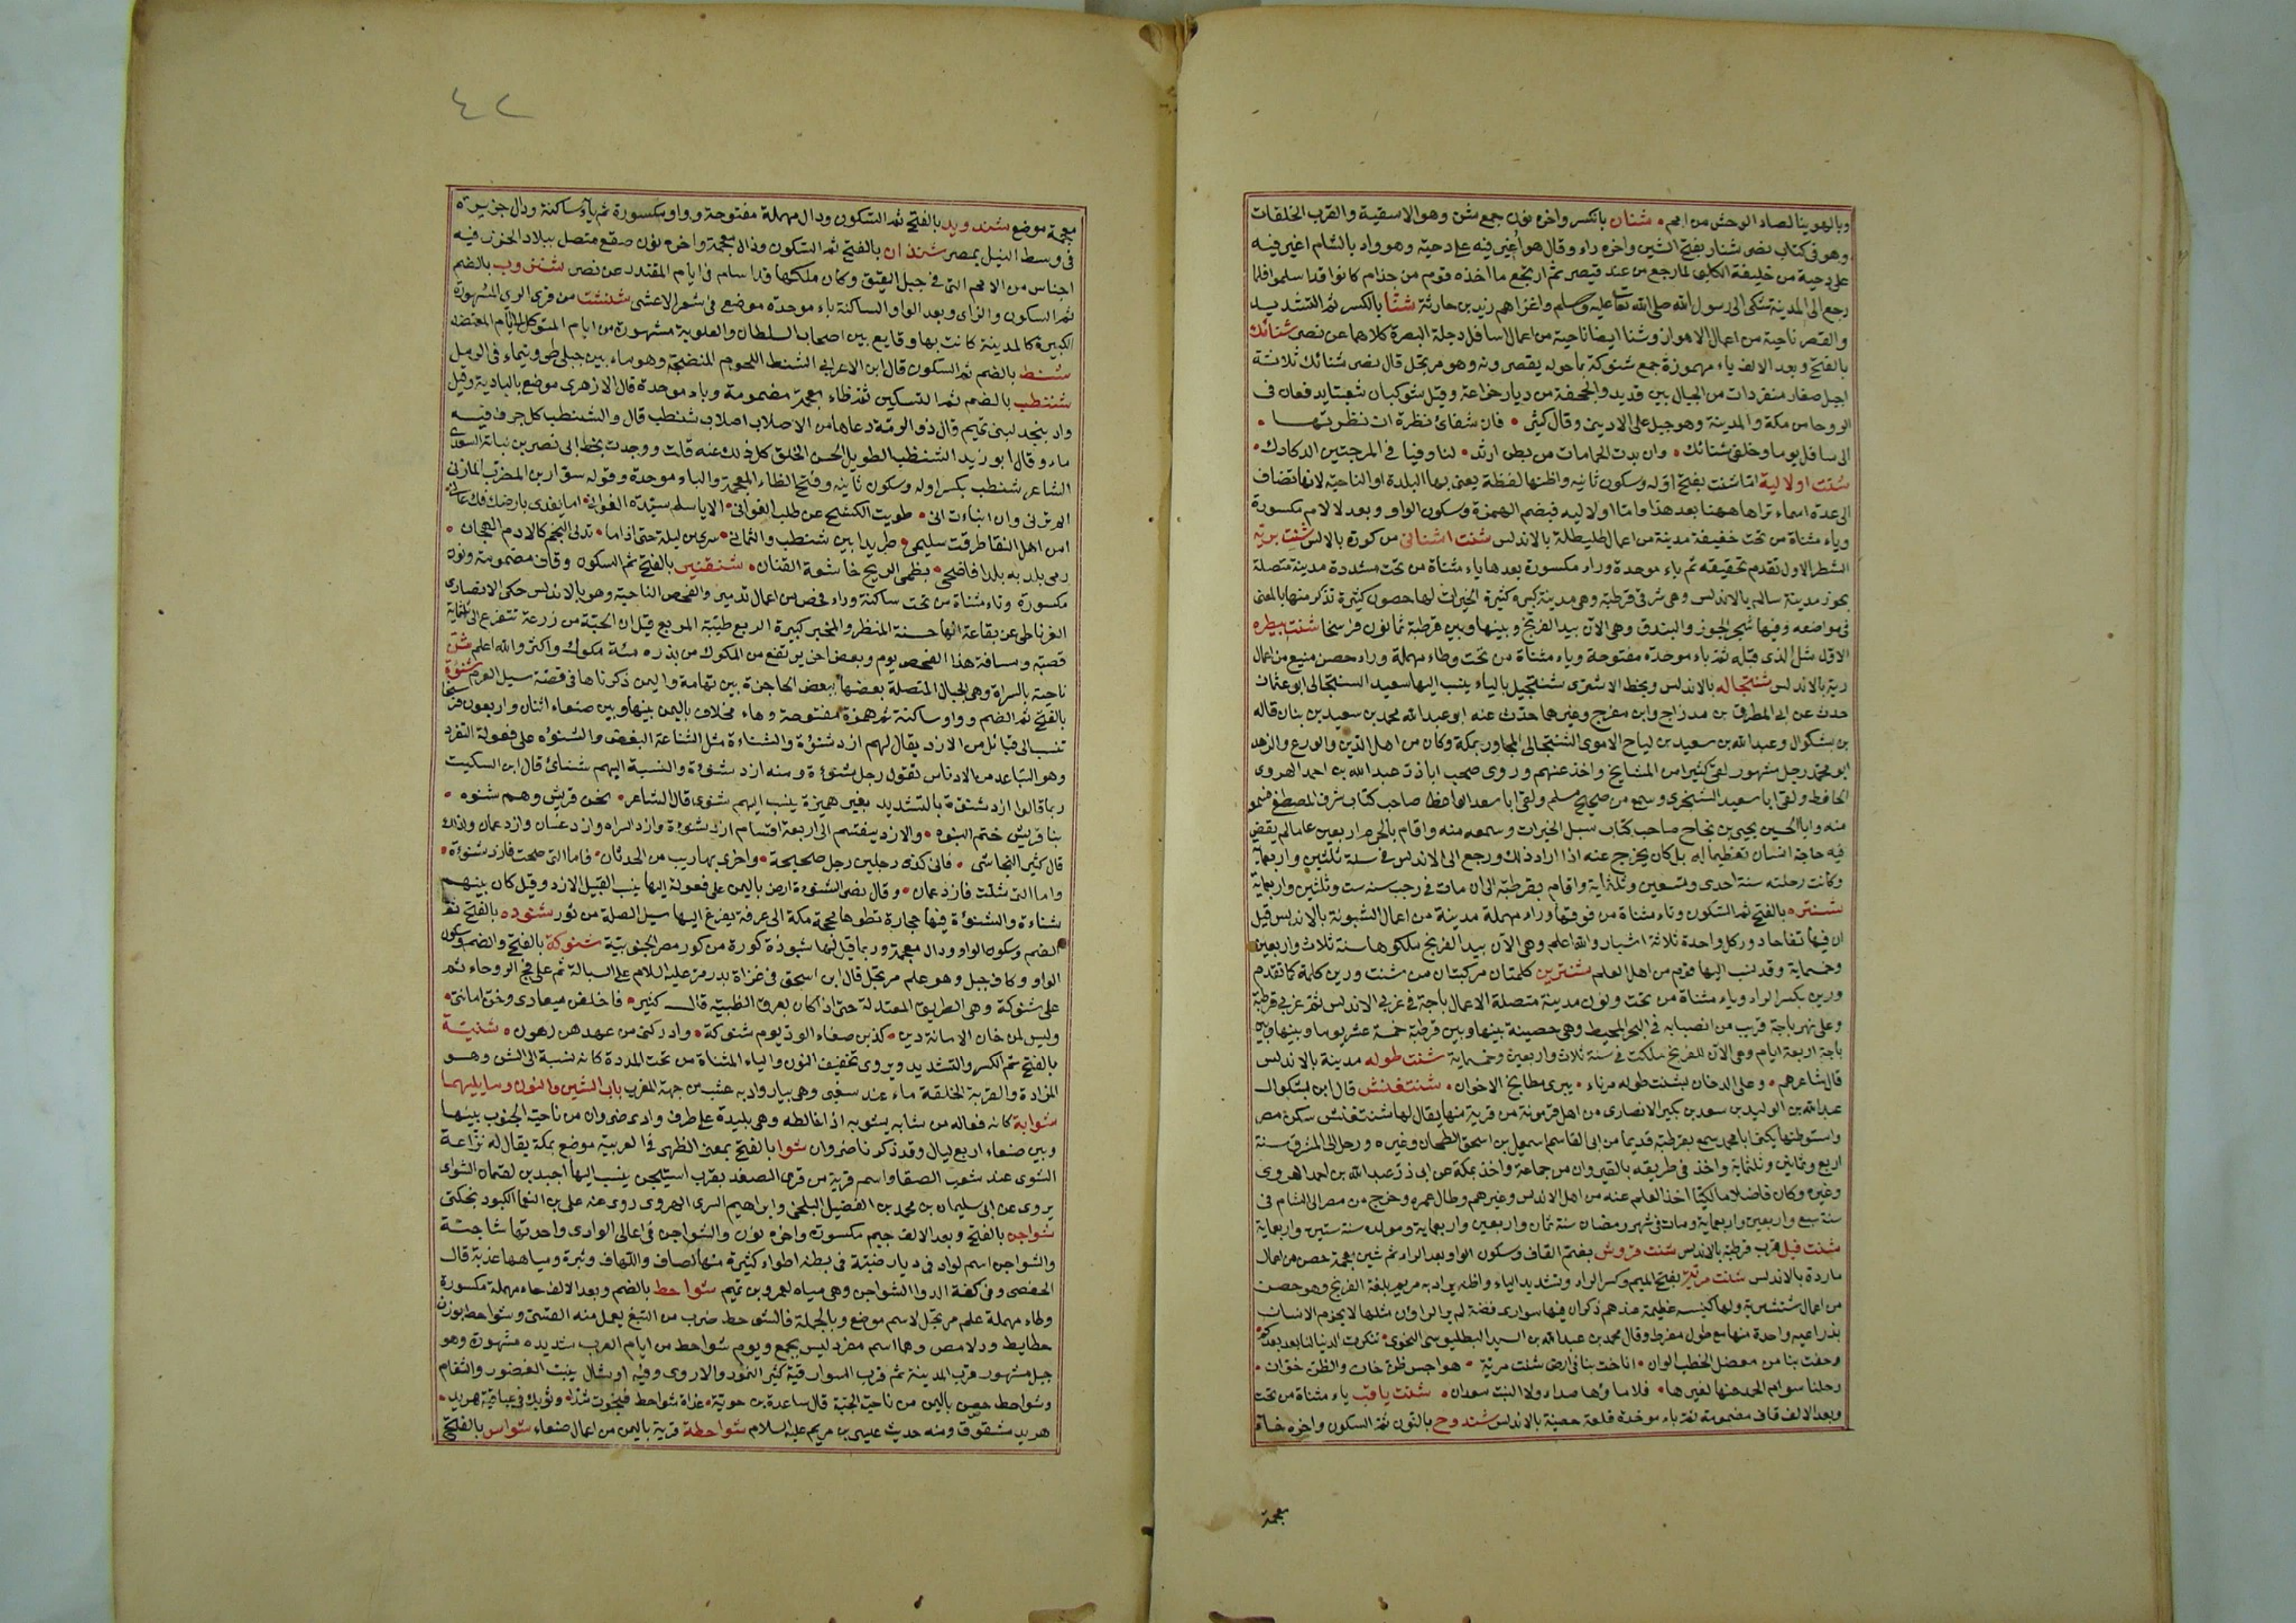 وبالهوينا لصاد الوحش من امم • شنان بالكسر واخره نون جمع شن وهو الاسقية والقرب الخلقات
وهو في كتاب نصر شنار بفتح الشين واخره راء وقال هو اغير فيه على دحية وهو واد بالشام اغير فيه
على دحية من خليفة الكلبي لما رجع من عند قيصر ثم ارتجع ما اخذه قوم من جذام كانوا قد اسلموا فلما
رجع الى المدينة شكى الى رسول الله صلى الله تعا عليه وسلم واغزاهم زيد بن حارثة شنّا بالكسر ثم التشديد
والقصر ناحية من اعمال الاهواز وشنا ايضا ناحية من اعمال اسافل دجلة البصرة كلاهما عن نصر شنائك
بالفتح وبعد الالف ياء مهموزة جمع شنوكة بما حوله يقصرونه وهو مرتجل قال نصر شنائك ثلاثة
اجبل صغار منفردات من الجبال بين قديد والجحفة من ديار خزاعة وقيل شوكتان شعبتا يدفعان في
الروحا من مكة والمدينة وهو جبل على الاديين وقال كثير • فان شفائ نظرة ان نظرتها •
الى سافل يوما وخلفى شنائك • وان بدت الخامات من بطن ارثد • لنا وفيا في المرختين الدكادك •
شنت اولاليه اما شنت بفتح اوله وسكون ثانيه واظنها لفظة يعنى بها البلدة او الناحية لانها تضاف
الى عدة اسماء تراها ههنا بعد هذا واما اولاليه فبضم الهمزة وسكون الواو وبعد لا لام مكسورة
وياء مثناة من تحت خفيفة مدينة من اعمال طليطلة بالاندلس شنت اشتانى من كورة بالاندلس شنت بريه
الشطر الاول تقدم تحقيقه ثم باء موحدة وراء مكسورة بعدها ياء مثناة من تحت مشددة مدينة متصلة
بحوز مدينة سالم بالاندلس وهى شرقى قرطبة وهى مدينة كبيرة كثيرة الخيرات لها حصون كثيرة نذكر منها بالمعنى
في مواضعه وفيها شجر الجوز والبندق وهى الان بيد الفرنج وبينها وبين قرطبة ثمانون فرسخا شنت بيطره
الاول مثل الذى قبله ثم باء موحدة مفتوحة وياء مثناة من تحت وطاء مهملة وراء حصن منيع من اعمال
رية بالاندلس شنتجاله بالاندلس وبخط الاشترى شنتجيل بالياء ينسب اليها سعيد الشنتجالى ابو عثمان
حدث عن ابى المطرف بن مدراج وابن مفرج وغيرهما حدث عنه ابو عبدالله محمد بن سعيد بن بنان قاله
بن بشكوال وعبدالله بن سعيد بن لباح الاموى الشنتجالى المجاور بمكة وكان من اهل الدين والورع والزهد
ابو محمد رجل مشهور لقى كثيرا من المشايخ واخذ عنهم وروى صحب اباذر عبد الله بن احمد الهروى
الحافظ ولقى ابا سعيد السنجرى وسمع من صحيح مسلم ولقى ابا سعد الحافظ صاحب كتاب شرف المصطفى فسمع
منه وابا الحسين يحيى بن نجاح صاحب كتاب سبل الخيرات وسمعه منه واقام بالحرم اربعين عاما لم يقض
فيه حاجة انسان تعظيما له بل كان يخرج عنه اذا اراد ذلك ورجع الى الاندلس في سنة ثلثين واربعمائة
وكانت رحلته سنة احدى وتسعين وثلثماية واقام بقرطبة الى ان مات في رجب سنه ست وثلثين واربعماية
شنتره بالفتح ثم السكون وتاء مثناة من فوقها وراء مهملة مدينة من اعمال الشبونة بالاندلس قيل
ان فيها تفاحا دور كل واحدة ثلاثة اشبار والله اعلم وهى الان بيد الفرنج ملكوها سنة ثلاث واربعين
وخمسماية وقد نسب اليها قوم من اهل العلم شنترين كلمتان مركبتان من شنت ورين كلمة كما تقدم
ورين بكسر الراء وياء مثناة من تحت ونون مدينة متصلة الاعمال بباجة في غربى الاندلس ثم غربى قرطبة
وعلى نهر باجة قرب من انصبابه في البحر المحيط وهى حصينة بينها وبين قرطبة خمسة عشر يوما وبينها وبين
باجة اربعة ايام وهى الان للفرنج ملكت في سنة ثلاث واربعين وخمسماية شنت طوله مدينة بالاندلس
قال شاعرهم • وعلى الدخان بشنت طوله مرباء • يبرى مطابخ الاخوان • شنتغنش قال ابن بشكوال
عبدالله بن الوليد بن سعد بن بكير الانصارى من اهل قرمونة من قرية منها يقال لها شنتغنش سكن مصر
واستوطنها يكنى ابا محمد سمع بقرطبة قديما من ابى القاسم اسمعيل بن اسحق الطحان وغيره ورحل الى المشرق سنة
اربع وثمانين وثلثماية واخذ في طريقه بالقيروان من جماعة واخذ بمكة عن ابى ذر عبدالله بن احمد الهروى
وغيره وكان فاضلا مالكيا اخذ العلم عنه من اهل الاندلس وغيرهم وطال عمره وخرج من مصر الى الشام في
سنة سبع واربعين واربعماية ومات في شهر رمضان سنة ثمان واربعين واربعماية ومولده سنة ستين وثلثماية
شنت فيل قرب قرطبة بالاندلس شنت قروش بضم القاف وسكون الواو بعد الراء ثم شين معجمة حصن من اعمال
ماردة بالاندلس شنت مريّة بفتح الميم وكسر الراء وتشديد الياء واظنه يراد به مريم بلغة الفرنج وهو حصن
من اعمال شنتبرية ولها كنيسه عظيمة عندهم ذكر ان فيها سوارى فضة لم ير الراؤن مثلها لا يحزم الانسان
بذراعيه واحدة منها مع طول مفرط وقال محمد بن عبدالله بن السيد البطليوسى النحوى • تنكرت الدنيا لنا بعد بعدكم •
وحفت بنا من معضل الخطب الوان • اناخت بنا في ارض شنت مرية • هواجس ظن خان والظن خوان •
رحلنا سوام الحمد عنها لغيرها • فلا ماؤها صداء ولا النبت سعدان • شنت ياقب ياء مثناة من تحت
وبعد الالف قاف مضمومة ثم باء موحدة قلعة حصينة بالاندلس شندوح بالنون ثم السكون واخره خاء
معجمة
٤٢
معجمة موضع شندويد بالفتح ثم السكون ودال مهملة مفتوحة وواو مكسورة ثم ياء ساكنة ودال جزيرة
في وسط النيل بمصر شنذان بالفتح ثم السكون وذال معجمة واخره نون صقع متصل ببلاد الخزر فيه
اجناس من الامم التى في جبل القيق وكان ملكها قد اسلم في ايام المقتدر عن نصر شنزوب بالضم
ثم السكون والزاى وبعد الواو الساكنة باء موحدة موضع في شعر الاعشى شنشت من قرى الرى المشهورة
الكبيرة كالمدينة كانت بها وقايع بين اصحاب السلطان والعلوية مشهورة من ايام المتوكل الى ايام المعتضد
شنط بالضم ثم السكون قال ابن الاعرابى الشنط اللحوم المنضجة وهو ماء بين جبلى طى وتيماء في الرمل
شنظب بالضم ثم التسكين ثم ظاء معجمة مضمومة وباء موحدة قال الازهرى موضع بالبادية وقيل
واد بنجد لبنى تميم قال ذو الرمة دعاها من الاصلاب اصلاب شنظب قال والشنظب كل جرف فيه
ماء وقال ابو زيد الشنظب الطويل الحسن الخلق كل ذلك عنه قلت ووجدت بخط ابى نصر بن نباتة السعدى
الشاعر شنظب بكسر اوله وسكون ثانيه وفتح الظاء المعجمة والباء موحدة وقوله سوار بن المضرب المازنى
الم ترنى وان انباءت انى • طويت الكشح عن طلب الغوانى • الا يا سلم سيدة الغوانى • اما يفدى بارضك فك عانى
امن اهل النقا طرقت سليمى • طريدا بين شنظب والثمانى • سرى من ليلة حتى اذا ما • تدلى النجم كالادم الهجان •
رمى بلد به بلدا فاضحى • بظمى الريح خاشعة القنان • شنقنير بالفتح ثم السكون وقاف مضمومة ونون
مكسورة وياء مثناة من تحت ساكنة وراء فحص من اعمال تدمير والفحص الناحية وهو بالاندلس حكى الانصارى
الغرناطى عن بقاعة انها حسنة المنظر والمخبر كبيرة الريع طيبة المريع قيل ان الحبة من زرعة تتفرع الى ثلثماية
قصبة ومسافة هذا الفحص يوم وبعض اخر يرتفع من المكوك من بذره مئة مكوك واكثر والله اعلم شن
ناحية بالسراة وهى الجبال المتصلة بعضها ببعض الحاجزة بين تهامة واليمن ذكرناها في قصة سيل العرم شنؤة
بالفتح ثم الضم وواو ساكنة ثم همزة مفتوحة وهاء مخلاف باليمن بينها وبين صنعاء اثنان واربعون فرسخا
تنسب الى قبائل من الازد يقال لهم ازد شنؤة والشناءة مثل الشناعة البغض والشنؤه على فعولة التقزد
وهو التباعد من الادناس تقول رجل شنؤة ومنه ازد شنوءة والنسبة اليهم شنائى قال ابن السكيت
ربما قالوا ازد شنوة بالتشديد بغير همزة ينسب اليهم شنوى قال الشاعر • نحن قريش وهم شنوه •
بنا قريش ختم النبوه • والازد ينقسم الى اربعة اقسام ازد شنوءة وازد السراه وازد غسان وازد عمان ولذلك
قال كثير النجاشى • فانى كذى رجلين رجل صحيحة • واخرى بها ريب من الحدثان • فاما التى صحت فازد شنوءة •
واما التى شلت فازد عمان • وقال نصر الشنوءة ارض باليمن على فعولة اليها ينسب القبيل الازد وقيل كان بينهم
شناءة والشنؤة فيها حجارة تطوها محجة مكة الى عرفة يفرغ اليها سيل الصلة من ثور شنوده بالفتح ثم
الضم وسكون الواو ودال معجمة وربما قيل لها شبوذة كورة من كور مصر الجنوبية شنوكة بالفتح والضم وسكون
الواو وكاف جبل وهو علم مرتجل قال ابن اسحق في غزاة بدر مر عليه السلام على السيالة ثم على فج الروحاء ثم
على شنوكة وهى الطريق المعتدلة حتى اذا كان بعرق الظبية قال كثير • فاخلفن ميعادى وخن امانتى •
وليس لمن خان الامانة دين • كذبن صفاء الود يوم شنوكة • وادركنى من عهدهن رهون • شنيّة
بالفتح ثم الكسر والتشديد ويروى تخفيف النون والياء المثناة من تحت المشددة كانه نسبة الى الشن وهو
المزادة والقربة الخلقة ماء عند سفى وهى بيار وادبه عشب من جهة المغرب باب الشين والواو وما يليهما
شوابة كانه فعاله من شابه يشوبه اذا خالطه وهى بليدة على طرف وادى ضروان من ناحية الجنوب بينها
وبين صنعاء اربع ليال وقد ذكرنا ضروان شوا بالفتح بمعنى الظهر في العربية موضع بمكة يقال له نزاعة
الشوى عند شعب الصفا واسم قرية من قرى الصغد بقرب اشتيخن ينسب اليها اجيد بن لقمان الشواى
يروى عن ابى سليمان بن محمد بن الفضيل البلخى وابراهيم السرى الهروى روى عنه على بن النعما الكبودنجكثى
شواجن بالفتح وبعد الالف جيم مكسورة واخره نون والشواجن في اعالى الوادى واحدتها شاجنة
والشواجن اسم لواد في ديار ضبة في بطنه اطواء كثيرة منها لصاف واللهاف وثبرة ومياهها عذبة قال
الحفصى وفى كفة الدوا الشواجن وهى مياه لعمرو بن تميم شواحط بالضم وبعد الالف حاء مهملة مكسورة
وطاء مهملة علم مرتجل لاسم موضع وبالجملة فالشوحط ضرب من النبع يعمل منه القسى وشواحط بوزن
حطايط ودلامص وهما اسم مفرد ليس بجمع ويوم شواحط من ايام العرب شديده مشهورة وهو
جبل مشهور قرب المدينة ثم قرب السوارقية كثير النمور والاروى وفيه اوشال ينبت الغضور والثغام
وشواحط حصن باليمن من ناحية الجنة قال ساعدة بن جوية • غداة شواحط فنجوت شدا • وثوبك في عباقية هريد •
هريد مشقوق ومنه حديث عيسى بن مريم عليه السلام شواحطة قرية باليمن من اعمال صنعاء شواس بالفتح